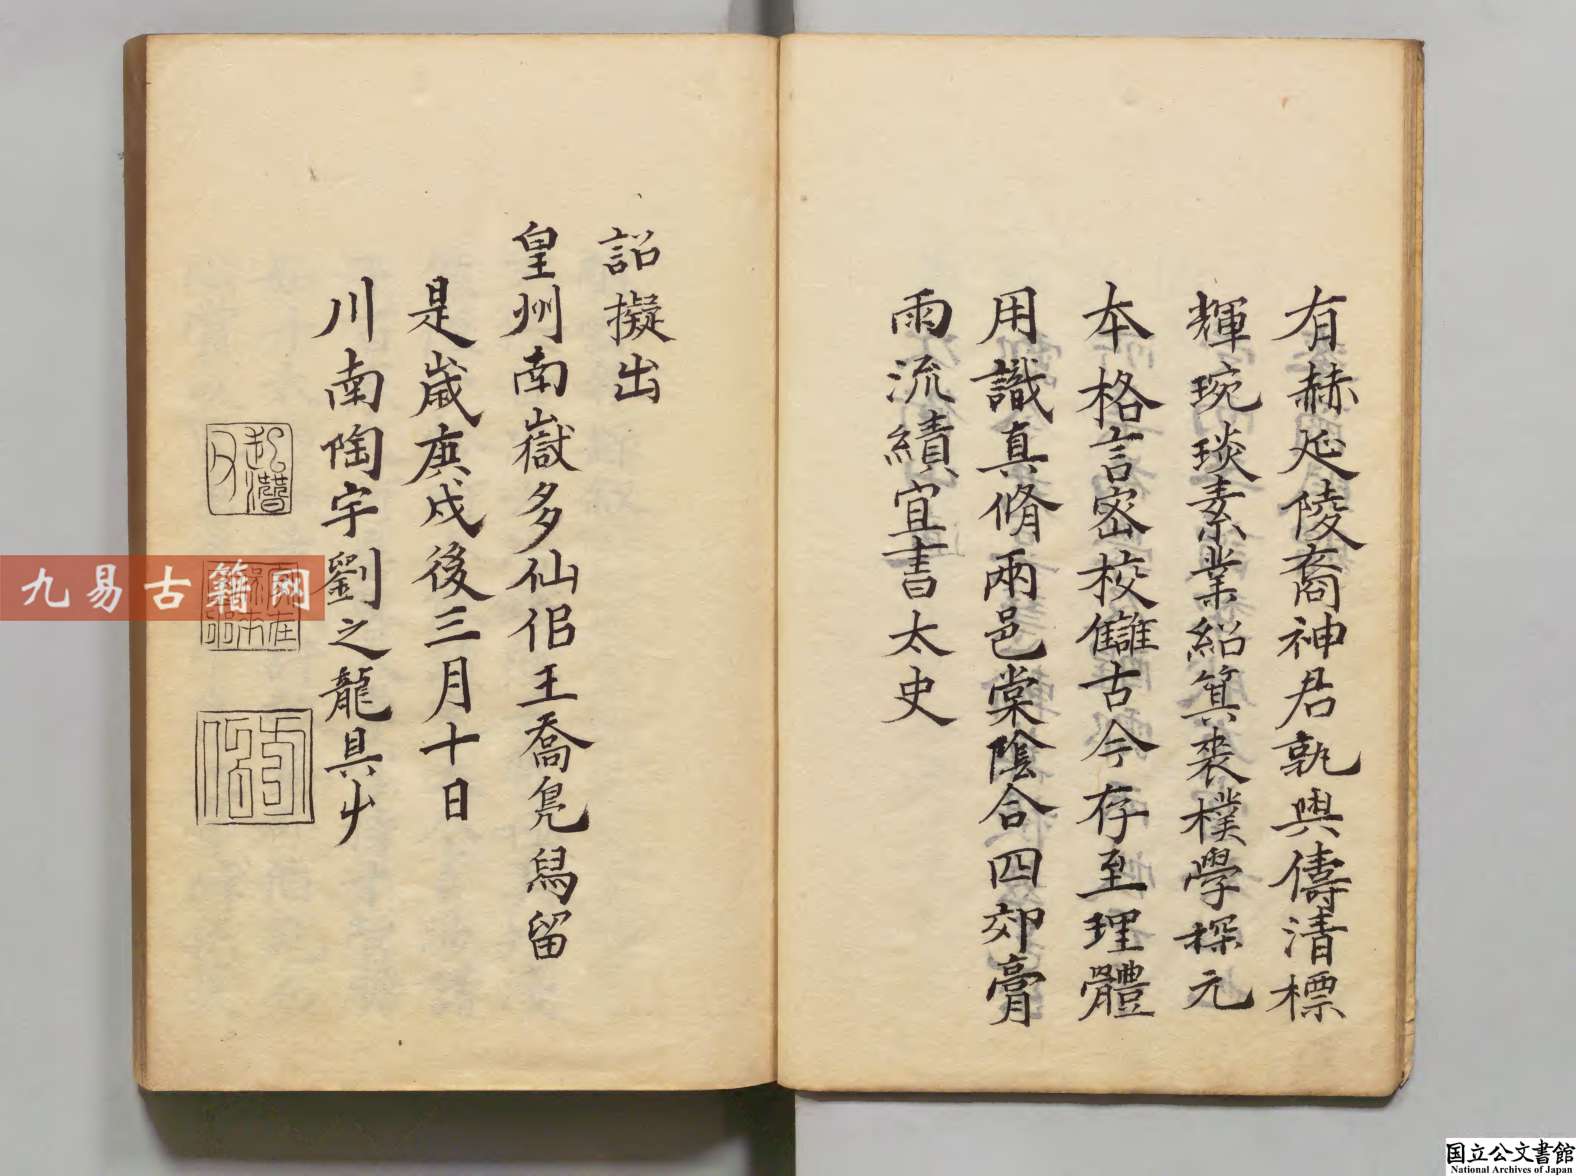 有赫延陵裔神君孰與儔清標
輝琬琰素業紹箕裘樸學探元
本格言密校讎古今存至理體
用識真脩兩邑棠陰合四郊膏
雨流績宜書太史
詔擬出
皇州南嶽多仙侶王喬鳧舄留
是歲庚戌後三月十日
川南陶宇劉之龍具艸
九易古籍网
国立公文書館
National Archives of Japan